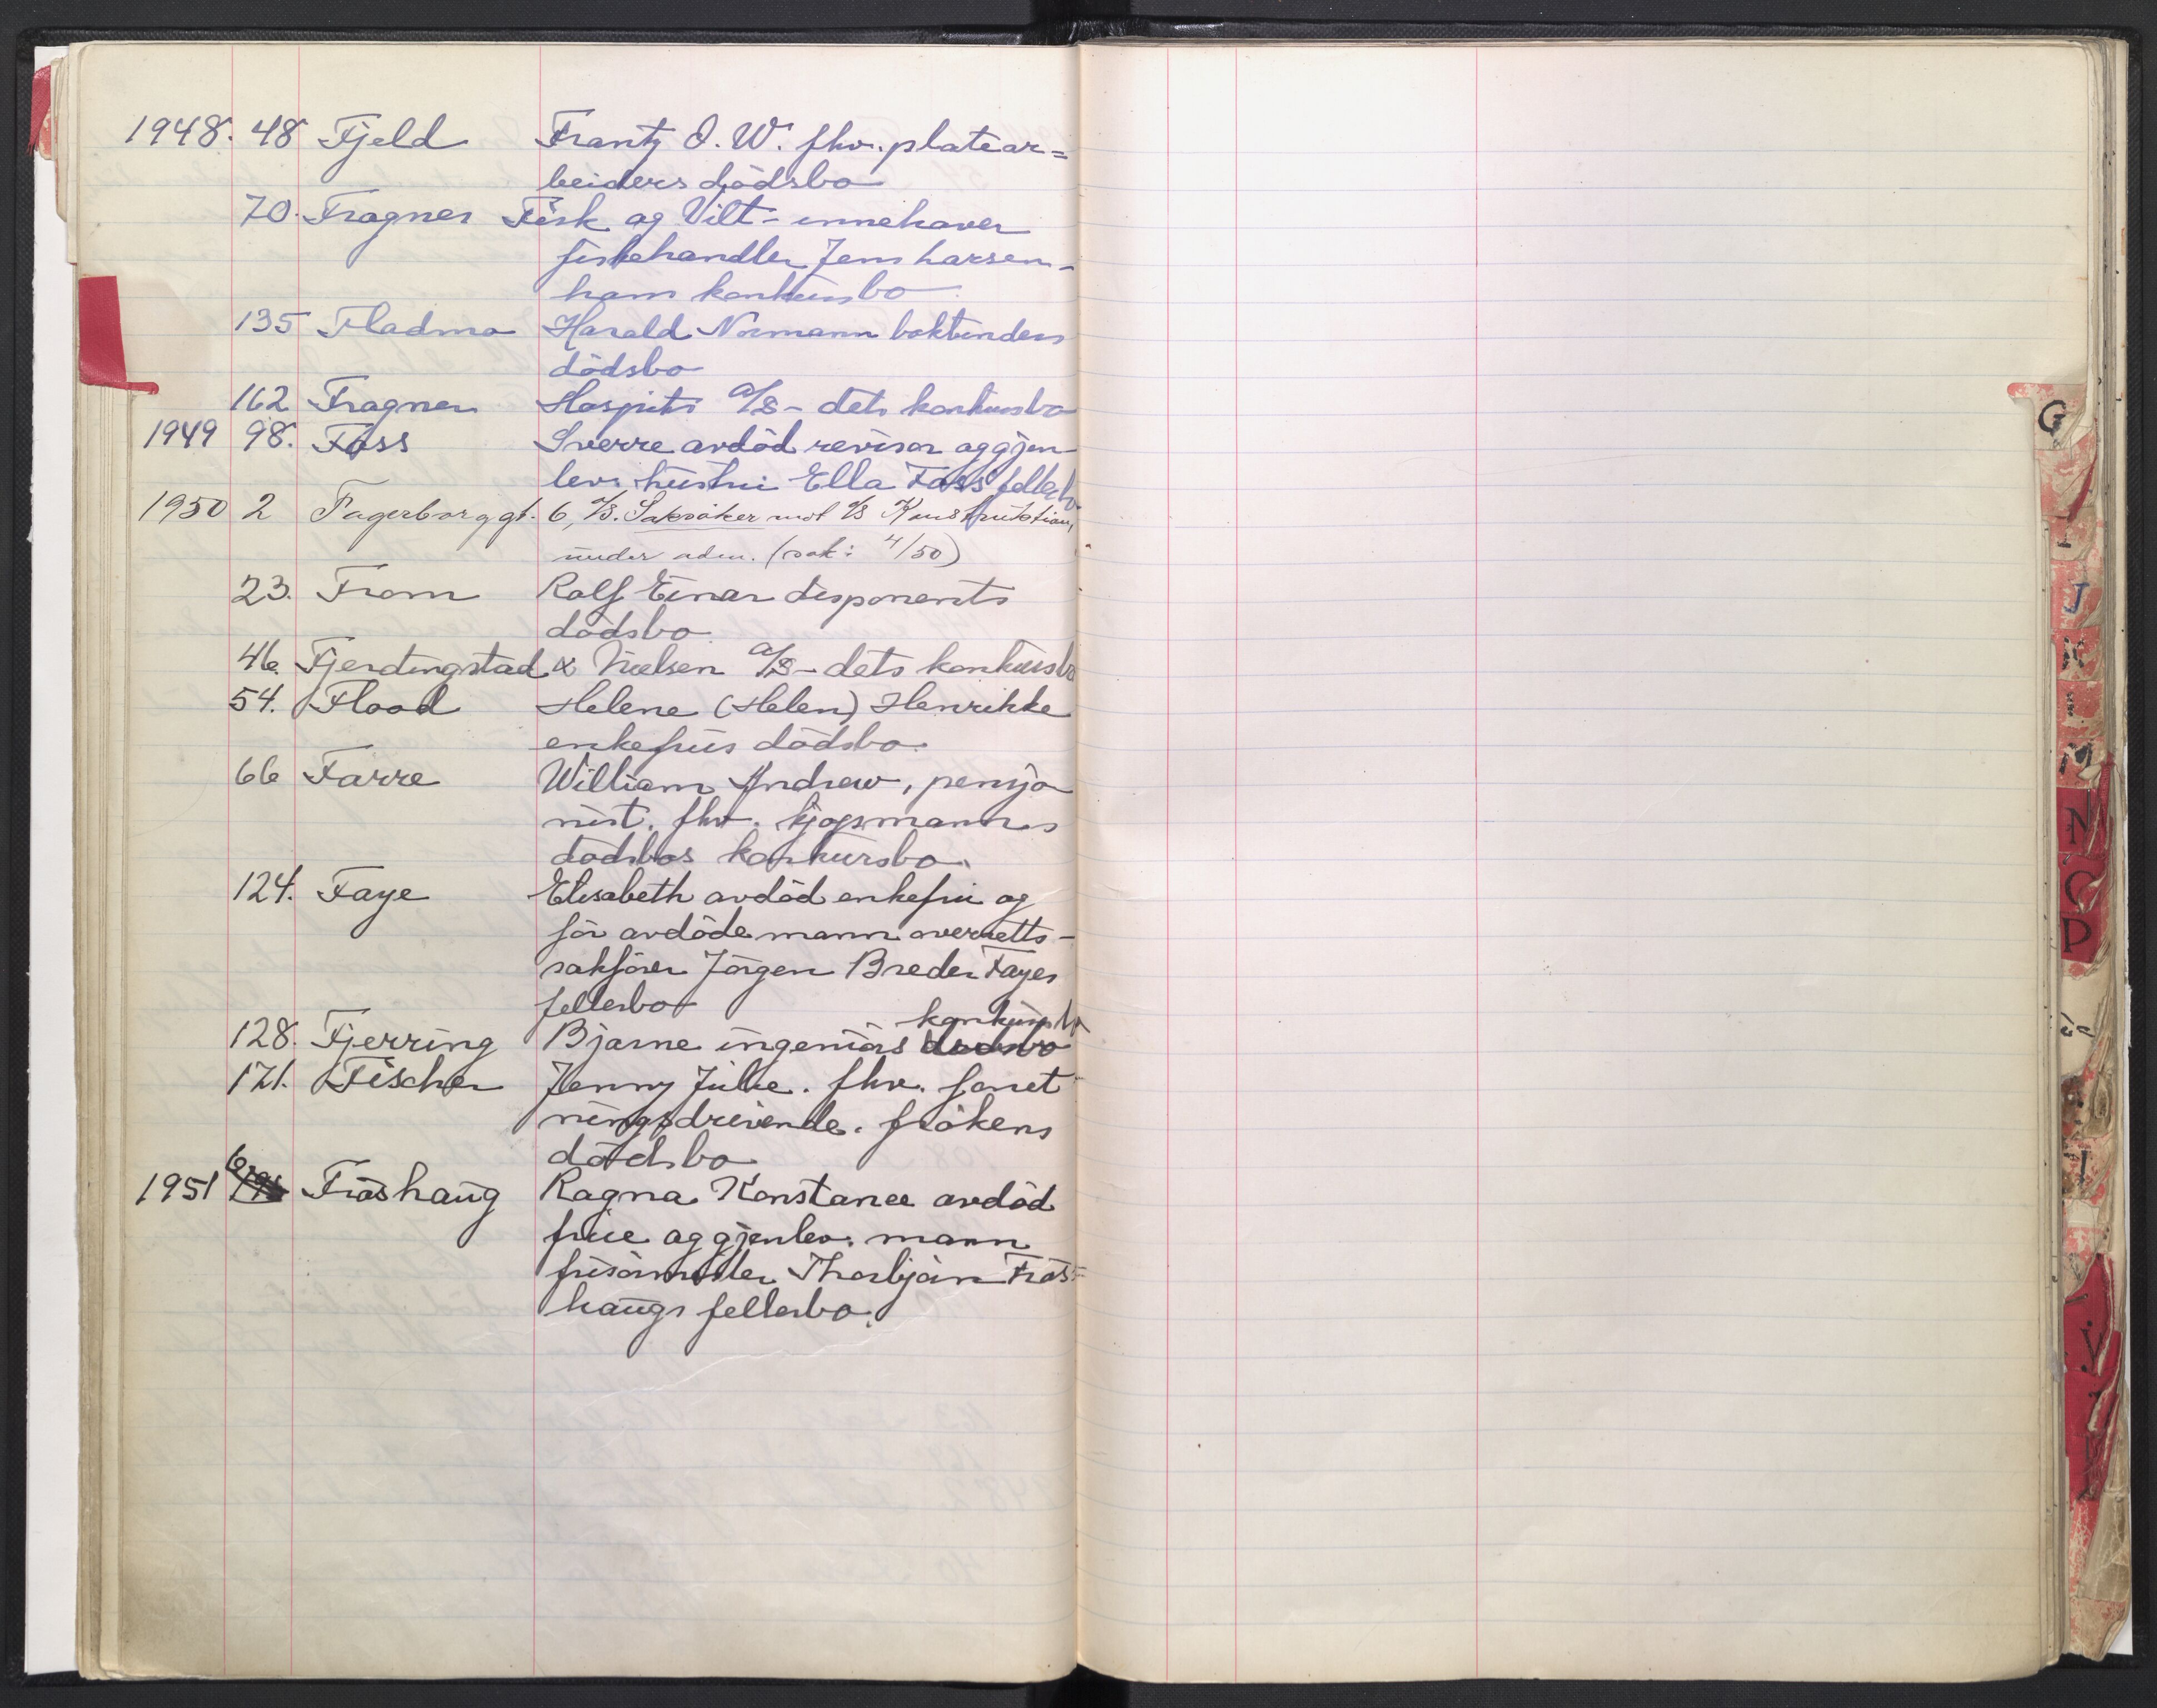 1948. 48 Fjeld Frantz O. W. fhv. platear=
beiders dödsbo
70. Frogner Fisk og Vilt - innehaver
fiskehandler Jens Larsen-
ham konkursbo
135 Fladmo Harald Normann bokbinders
dödsbo
162 Frogner Hospits A/S - dets konkursbo
1949 98. Foss Sverre avdöd revisor og gjen-
lev. hustru Ella Foss' fellesbo
1950 2 Fagerborggt. 6, A/S. Saksöker mot A/S Konstruktion,
under adm. (sak: 4/50)
23. From Rolf Einar disponents
dödsbo
46. Fjerdingstad & Nielsen A/S - dets konkursbo
54. Flood Helene (Helen) Henrikke
enkefrus dödsbo.
66 Farre William Andrew, pensjo
nist. fhv. kjøpmanns
dödsbos konkursbo.
124. Faye Elisabeth avdöd enkefru og
för avdöde mann overretts-
sakförer Jörgen Breder Fayes
fellesbo
konkursbo
128. Fjerring Bjarne ingeniörs dödsbo
171. Fischer Jenny Julie. fhv. forret
ningsdrivende. frökens
dödsbo
6
1951 Fröshaug Ragna Konstance avdöd
frue og gjenlev. mann
frisörmester Thorbjörn Frös=
haugs fellesbo.
G
J
K
M
N
O
P